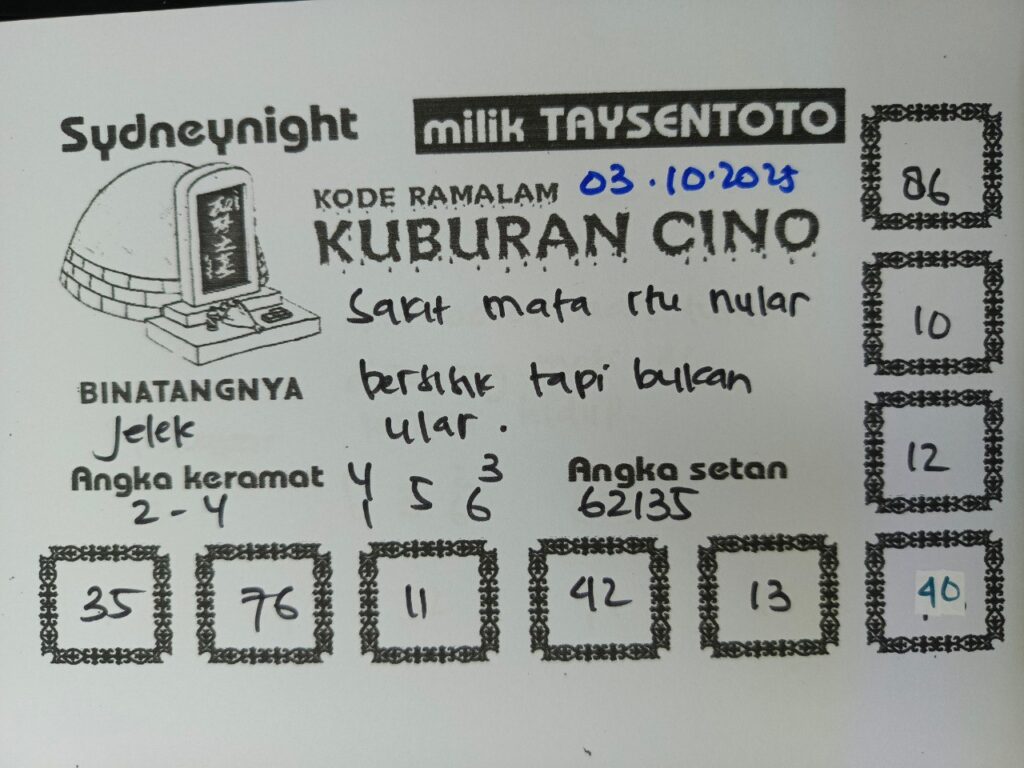 Sydneynight
milik TAYSENTOTO
KODE RAMALAM 03.10.2025
KUBURAN CINO
86
10
12
40
Sakit mata itu nular
bersisik tapi bukan
ular.
BINATANGNYA
Jelek
Angka keramat
2-4
4 5 3
1 6
Angka setan
62135
35 76 11 42 13